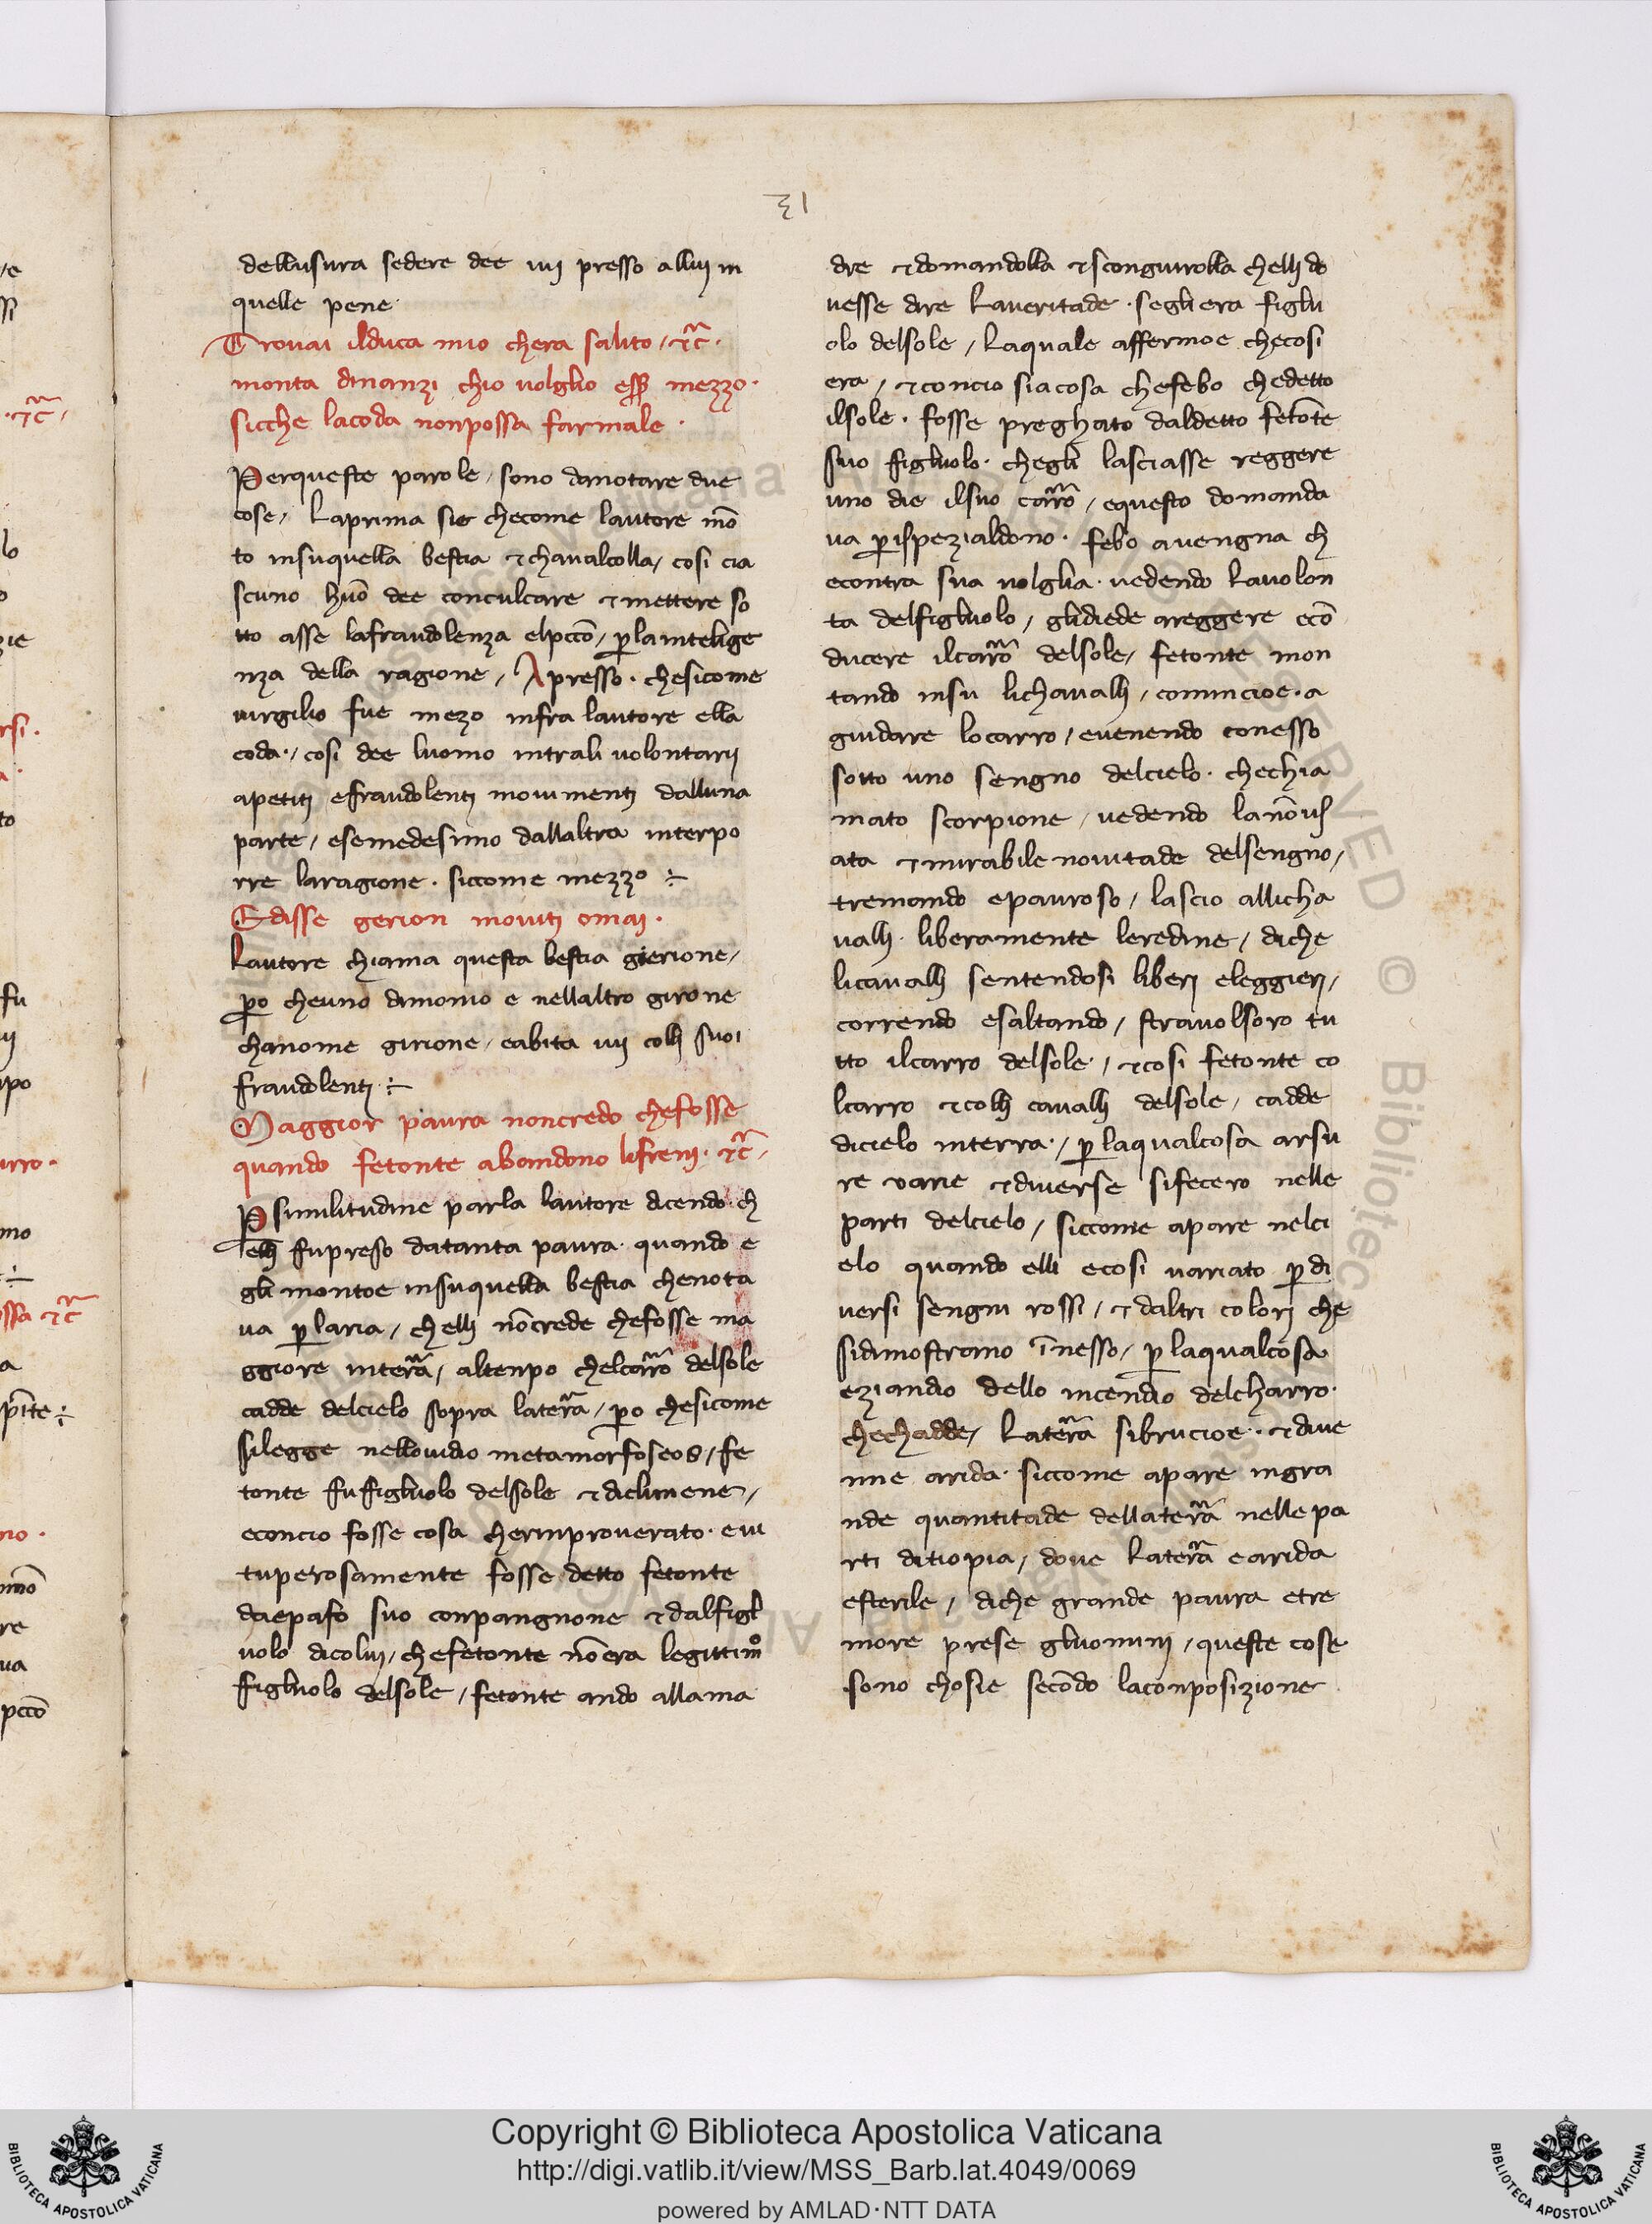 31
dellusura sedere dee iui presso allui in
quelle pene·
Trouai ilduca mio chera salito / ⁊c̃·
monta dinanzi chio uolglio eẜẜ mezzo·
sicche lacoda nonpossa farmale·
Perqueste parole / sono danotare due
cose / Laprima sie checome lautore mō
to insuquella bestia ⁊chaualcolla / cosi cia
scuno huō dee conculcare ⁊mettere so
tto asse lafraudolenza elpccō / ꝑlaintelige
nza della ragione / Apresso· chesicome
uirgilio fue mezo infra lautore ella
coda· / cosi dee luomo intrali uolontarij
apetiti efraudolenti mouimenti dalluna
parte / esemedesimo dallaltra interpo
rre laragione· siccome mezzo ÷
Edisse gerion mouiti omai·
Lautore chiama questa bestia gierione /
ꝑo cheuno dimonio e nellaltro girone
chanome girione / eabita iui colli suoi
fraudolenti ÷
Maggior paura noncredo chefosse
quando fetonte abandono lifreni· ⁊c̃ /
P similitudine parla lautore dicendo ch̄
elli fupreso datanta paura· quando e
gli montoe insuquella bestia chenota
ua ꝑlaria / chelli nōcrede chefosse ma
ggiore interr̃a / altenpo chelcarr̃o delsole
cadde delcielo sopra laterr̃a / ꝑo chesicome
silegge nellouidio metamorfoseos / fe
tonte fufigliuolo delsole ⁊diclimene /
econcio fosse cosa cherinprouerato· eui
tuperosamente fosse detto fetonte
daepafo suo conpangnone ⁊dalfigli
uolo dicolui / chefetonte nōera legittimo
figliuolo delsole / fetonte ando allama
dre ⁊domandolla ⁊scongiurolla chelli do
uesse dire Laueritade· segliera figliu
olo delsole / Laquale affermoe checosi
era / ⁊concio siacosa chefebo chedetto
ilsole· fosse preghato daldetto fetōte
suo figliuolo· chegli lasciasse reggere
uno die ilsuo carr̃o / equesto domanda
ua ꝑispezialdono· febo auengna ch̄
econtra sua uolglia· uedendo Lauolon
ta delfigliuolo / glidiede areggere ecō
ducere ilcarr̃o delsole / fetonte mon
tando insu lichaualli / comincioe· a
guidare locarro / euenendo conesso
sotto uno sengno delcielo· chechia
mato scorpione / uedendo lanōus
ata ⁊mirabile nouitade delsengno /
tremando epauroso / lascio allicha
ualli· liberamente leredine / diche
licaualli sentendosi liberi eleggieri /
correndo esaltando / strauolsoro tu
tto ilcarro delsole· / ⁊cosi fetonte co
lcarro ⁊colli caualli delsole / cadde
dicielo interra· / ꝑlaqualcosa arsu
re uarie ⁊diuerse sifecero nelle
parti delcielo / siccome apare nelci
elo quando elli ecosi uariato ꝑdi
uersi sengni rossi / ⁊daltri colori che
sidimostrano īnesso / ꝑlaqualcosa
eziandio dello incendio delcharro·
chechadde / Laterr̃a sibrucioe·⁊diue
nne arida· siccome apare ingra
nde quantitade dellaterr̃a nellepa
rti ditiopia / doue Laterr̃a earida
esterile / diche grande paura etre
more prese gliuomini / queste cose
sono chosie secōdo laconposizione
Copyright © Biblioteca Apostolica Vaticana
http://digi.vatlib.it/view/MSS_Barb.lat.4049/0069
powered by AMLAD·NTT DATA
BIBLIOTECA APOSTOLICA VATICANA
BIBLIOTECA APOSTOLICA VATICANA